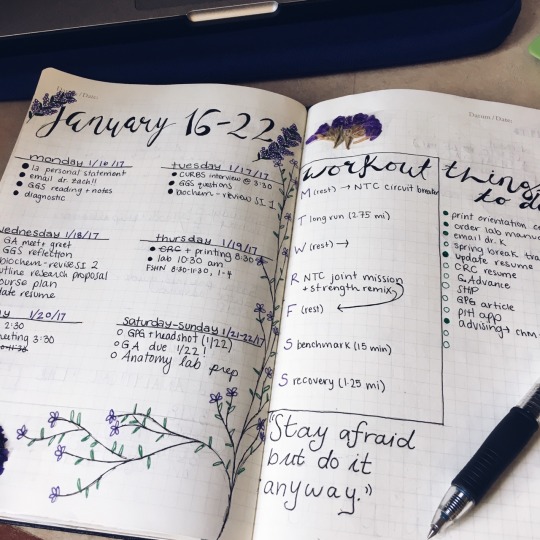 / Date:
January 16-22
monday 1/16/17
13 personal statement
email dr. zach!!
GGS reading + notes
diagnostic
tuesday 1/17/17
CURBS interview @ 3:30
GGS questions
biochem - review SI 1
wednesday 1/18/17
GA meet + greet
GGS reflection
biochem - review SI 2
outline research proposal
course plan
update resume
thursday 1/19/17
CRC + printing 8:30
lab 10:30 am
FSHN 8:30-11:30, 1-4
1/20/17
2:30
meeting 3:30
saturday-sunday 1/21-22/17
GPG + headshot (1/22)
GA due 1/22!
Anatomy lab prep
workout
M (rest) → NTC circuit breaker
T long run (2.75 mi)
W (rest) →
R NTC joint mission
+ strength remix
F (rest)
S benchmark (15 min)
S recovery (1.25 mi)
"Stay afraid
but do it
anyway."
Datum / Date:
things
to do
print orientation
order lab manual
email dr. k
spring break
update resume
CRC resume
G.Advance
SHIP
GPG article
PIH app
advising +